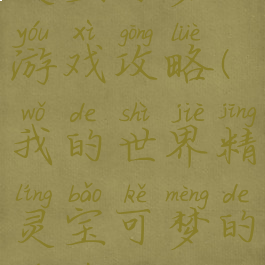 yóu xì gōng lüè
游戏攻略(
wǒ de shì jiè jīng
我的世界精
líng bǎo kě mèng de
灵宝可梦的